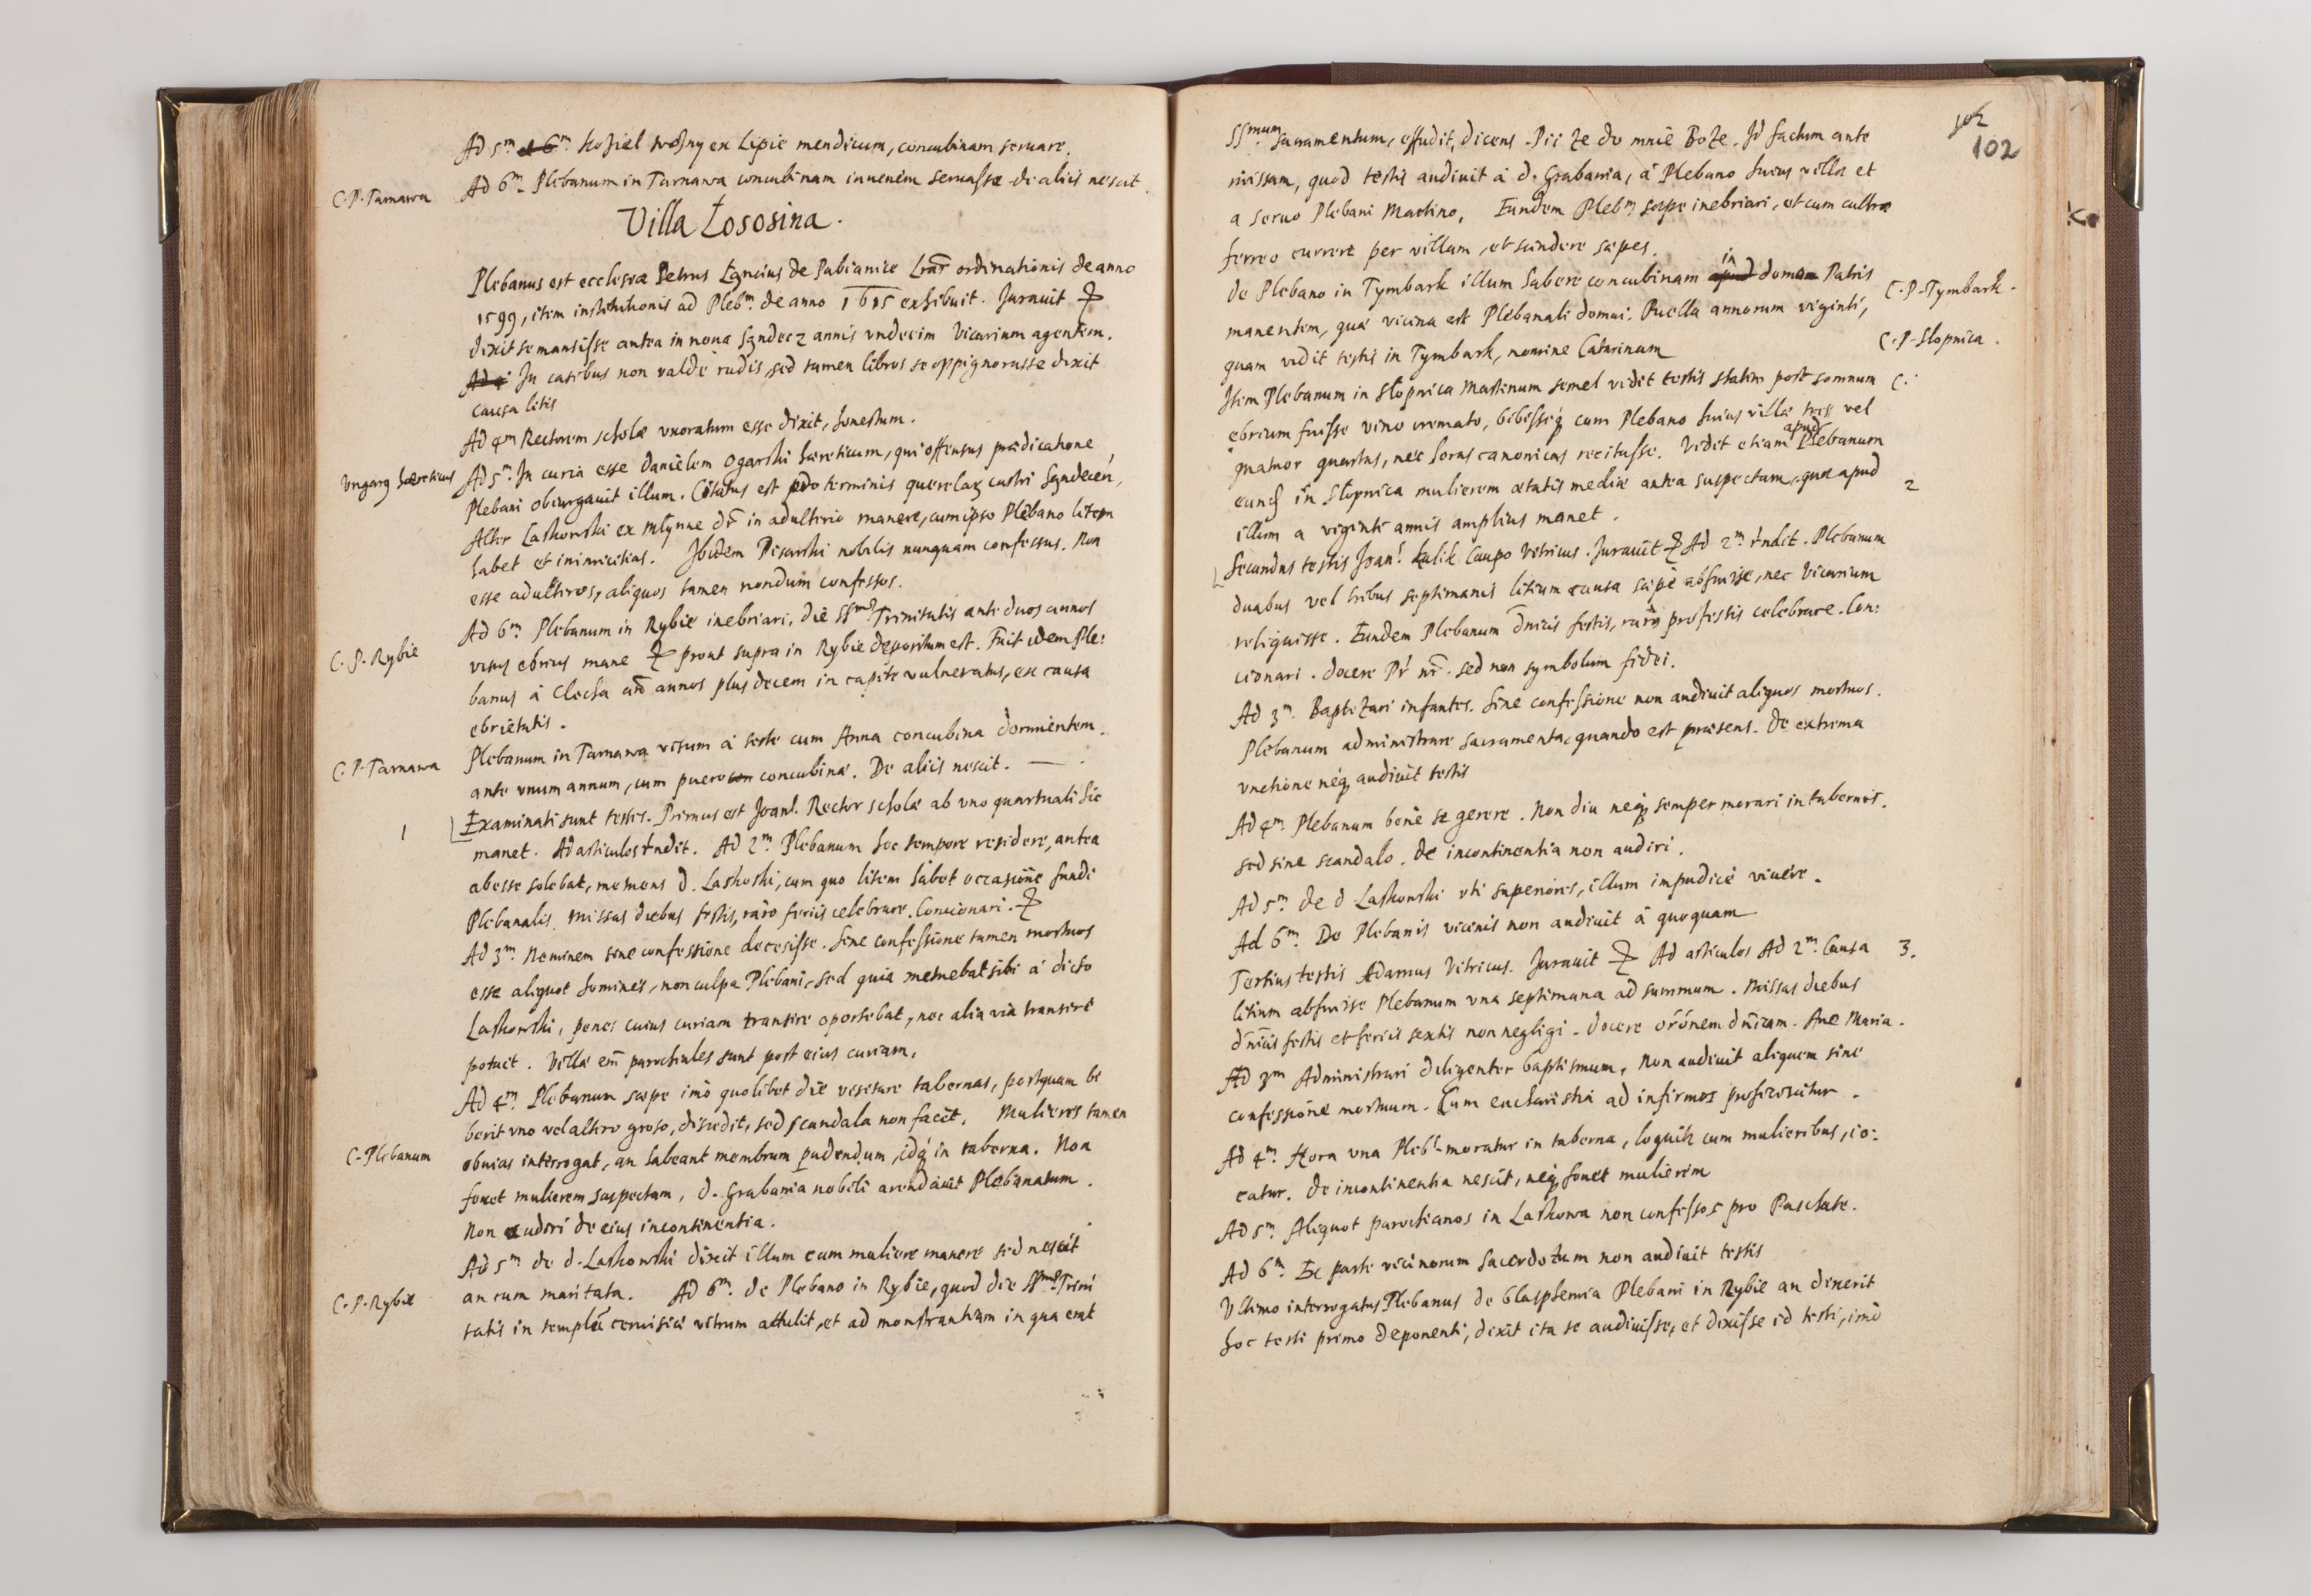 Ad 5m et 6m. Koziel woźny ex Lipie mendicum, concubinam seruare.
C. P. Tarnawa
Ad 6m. Plebanum in Tarnawa concubinam iuuenem seruasse de aliis nescit.
Villa Łososina.
Plebanus est ecclesiæ Petrus de Pabianice Lrãs ordinationis de anno
1599, item institutionis ad Plebm. de anno 1615 exhibuit. Jurauit
dixit se mansisse antea in noua Sądecz annis vndecim Vicarium agentem.
Ad In casibus non valdè rudis, sed tamen libros se oppignorasse dixit
causa litis
Ad 4m Rectorem scholæ vxoratum esse dixit, honestum.
Vngarg hæreticus
Ad 5m. In curia esse Danielem Ogarski hæreticum, qui offensus prædicatione
Plebani obiurgauit illum. Citatus est pro terminis querelaꝝ castri Sądecen,
Alter Laskowski ex młynne dr̃ in adulterio manere, cum ipso Plebano litem
habet et inimicitias. Ibidem Pisarski nobilis nunquam confessus. Non
esse adulteros, aliquos tamen nondum confessos.
C. P. Rybie
Ad 6m. Plebanum in Rybie inebriari, die SSmæ Trinitatis ante duos annos
visus ebrius mane prout supra in Rybie depositum est. Fuit idem Ple:
banus à Clecha añ annos plus decem in capite vulneratus, ex causa
ebrietatis.
C. P. Tarnawa
Plebanum in Tarnawa visum à teste cum Anna concubina dormientem.
ante vnum annum, cum puero con concubinæ. De aliis nescit.
1
Examinati sunt testes. Primus est Joanl. Rector scholæ ab vno quartuali hic
manet. Ad articulos rñdit. Ad 2m. Plebanum hoc tempore residere, antea
abesse solebat, metuens d. Laskoski, cum quo litem habet occasione fundi
Plebanalis. Missas diebus festis, raro feriis celebrare. Concionari.
Ad 3m. Neminem sine confessione decesisse. Sine confessione tamen mortuos
esse aliquot homines, non culpa Plebani, sed quia metuebat sibi à dicto
Laskowski, penes cuius curiam transire oportebat, nec alia via transire
potuit. Villæ em̃ parochiales sunt post eius curiam.
Ad 4m. Plebanum sæpe imò quolibet die visitare tabernas, postquam bi
berit vno vel altero groso, discedit, sed scandala non facit. Mulieres tamen
C. Plebanum
obuias interrogat, an habeant membrum pudendum, idq́ in taberna. Non
fouet mulierem suspectam, d. Grabania nobili arendauit Plebanatum.
Non audiri de eius incontinentia.
Ad 5m de d. Laskowski dixit illum cum muliere manere sed nescit
C. P. Rybie
an cum maritata. Ad 6m. de Plebano in Rybie, quod die SSmæ Trini
tatis in templũ ceruisiæ vitrum attulit, et ad monstrantiam in qua erat
102
102
SSmum. sacramentum, effudit, dicens. Pij ze do mnie Boże. Id factum ante
missam, quod testis audiuit à d. Grabania, à Plebano huius villæ et
a seruo Plebani Martino. Eundem Plebm sæpe inebriari, et cum cultro
ferreo currere per villam, et scindere sæpes.
C. P. Tymbark.
De Plebano in Tymbark illum habere concubinam apud in domo Patris
manentem, quæ vicina est Plebanali domui. Puella annorum viginti,
C. P. Slopnica.
quam vidit testis in Tymbark, nomine Catarinam
C.
Item Plebanum in Słopnica Martinum semel vidit testis statim post somnum
ebrium fuisse vino cremato, bibisseq́ cum Plebano huius villæ tres vel
quatuor quartas, nec horas canonicas recitasse. Vidit etiam apud Plebanum
2
eund in Słopnica mulierem ætatis mediæ antea suspectam, quæ apud
illum a viginti annis amplius manet.
Secundus testis Joan! Kulik Caupo Vitricus. Jurauit Ad 2m. rñdit. Plebanum
duabus vel tribus septimanis litium causa sæpè abfuisse, nec Vicarium
reliquisse. Eundem Plebanum dñicis festis, rarò profestis celebrare. Con:
cionari. docere Pr̃ nr̃. sed non symbolum fidei.
Ad 3m. Baptizari infantes. Sine confessione non audiuit aliquos mortuos.
Plebanum administrare sacramenta, quando est præsens. De extrema
vnctione neq́ audiuit testis
Ad 4m. Plebanum benè se gerere. Non diu neq́ semper morari in tabernis.
sed sine scandalo. de incontinentia non audiri.
Ad 5m. de d Laskowski vti superiores, illum impudicè viuere.
Ad 6m. De Plebanis vicinis non audiuit à quoquam
3.
Tertius testis Adamus Vitricus. Jurauit Ad articulos Ad 2m. Causa
litium abfuisse Plebanum vna septimana ad summum. Missas diebus
dñicis festis et feriis sextis non negligi. Docere orõnem dñicam. Aue Maria.
Ad 3m Administrari diligenter baptismum. Non audiuit aliquem sine
confessione mortuum. Cum eucharistia ad infirmos proficiscitur.
Ad 4m. Hora vna Plebs moratur in taberna, loquitꝛ cum mulieribus, io:
catur. de incontinentia nescit, neq́ fouet mulierem
Ad 5m. Aliquot parochianos in Laskowa non confessos pro Paschate.
Ad 6m. Ex parte vicinorum sacerdotum non audiuit testis
Vltimo interrogatus Plebanus de blasphemia Plebani in Rybie an dixerit
hoc testi primo deponenti, dixit ita se audiuisse, et dixisse id testi, imò